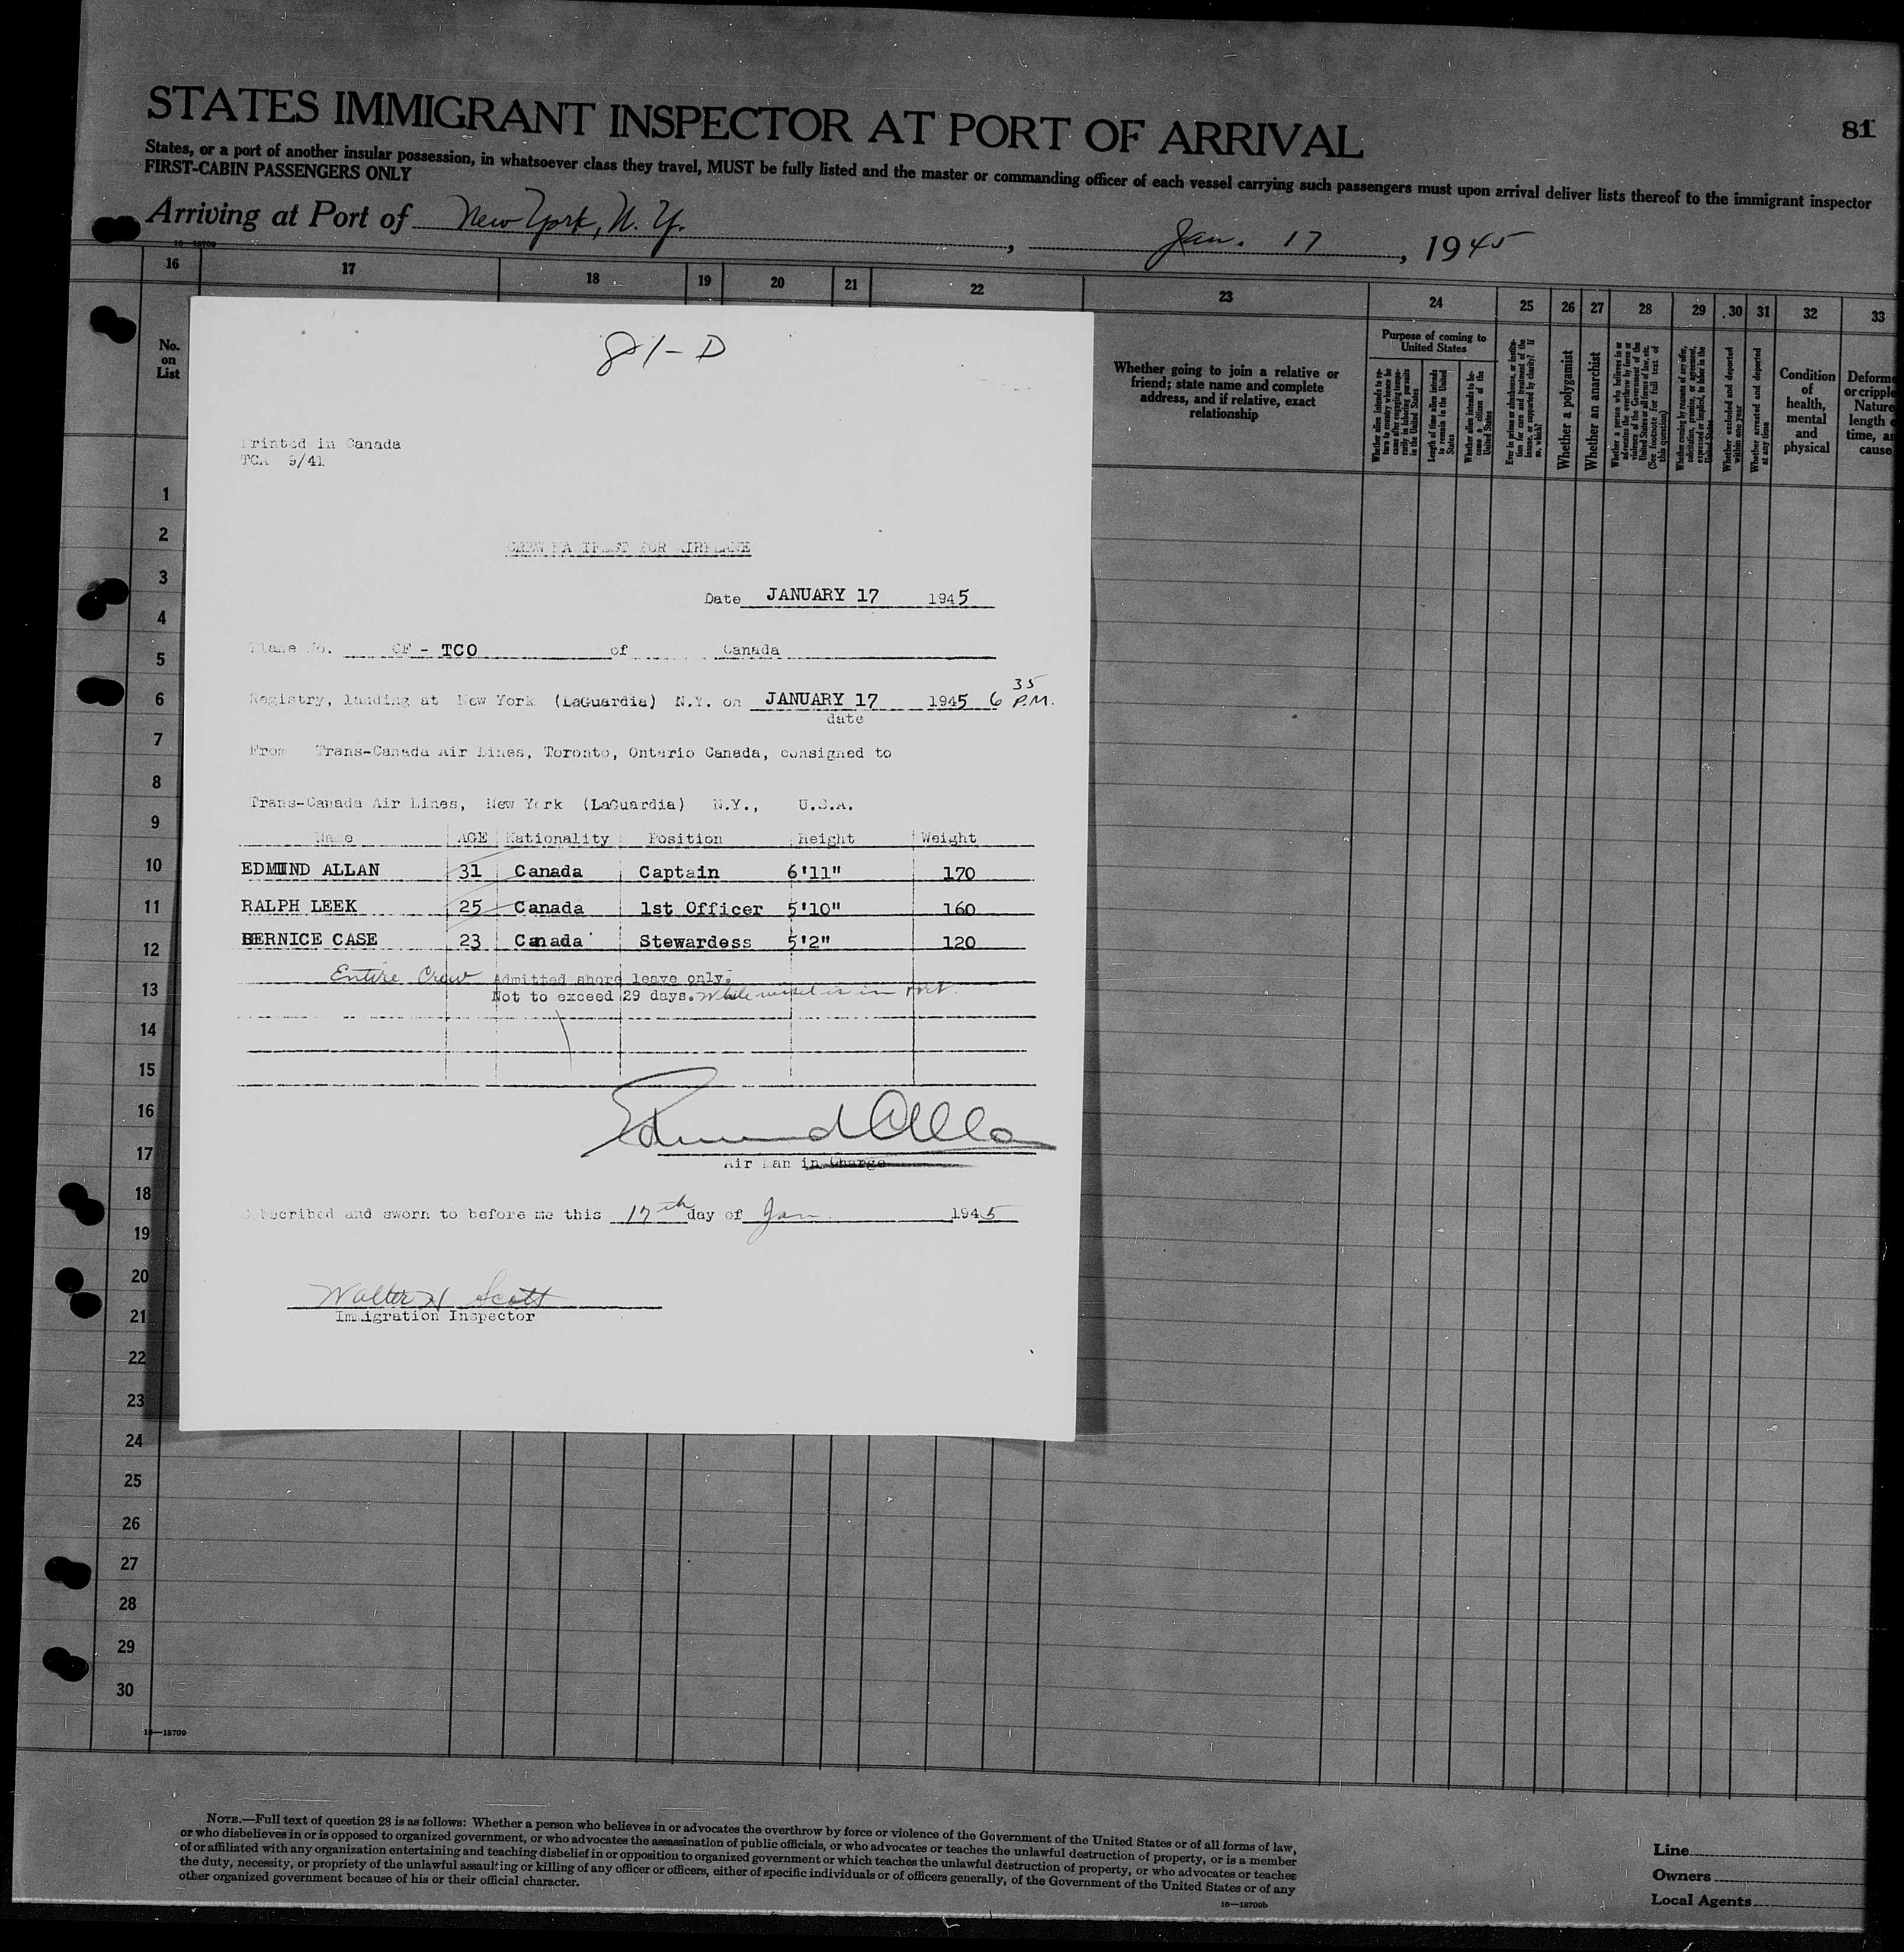 STATES IMMIGRANT INSPECTOR AT PORT OF ARRIVAL
81
States, or a port of another insular possession, in whatsoever class they travel, MUST be fully listed and the master or commanding officer of each vessel carrying such passengers must upon arrival deliver lists thereof to the immigrant inspector
FIRST-CABIN PASSENGERS ONLY
Arriving at Port of New York, N. Y. , Jan. 17 , 1945
16—18709
16 17 18 19 20 21 22 23 24 25 26 27 28 29 30 31 32 33
No.
on
List
Whether going to join a relative or
friend; state name and complete
address, and if relative, exact
relationship
Purpose of coming to
United States
Whether alien intends to return to country whence he came after engaging temporarily in laboring pursuits in the United States
Length of time alien intends to remain in the United States
Whether alien intends to become a citizen of the United States
Ever in prison or almshouse, or institution for care and treatment of the insane, or supported by charity? If so, which?
Whether a polygamist
Whether an anarchist
Whether a person who believes in or advocates the overthrow by force or violence of the Government of the United States or all forms of law, etc. (See footnote for full text of this question)
Whether coming by reason of any offer, solicitation, promise, or agreement, expressed or implied, to labor in the United States
Whether excluded and deported within one year
Whether arrested and deported at any time
Condition
of
health,
mental
and
physical
Deforme
or cripple
Nature
length o
time, an
cause
81-D
Printed in Canada
TCA 9/41
CREW MANIFEST FOR AIRPLANE
Date JANUARY 17 1945
Plane No. CF - TCO of Canada
Registry, landing at New York (LaGuardia) N.Y. on JANUARY 17 1945 6 35 P.M.
date
From Trans-Canada Air Lines, Toronto, Ontario Canada, consigned to
Trans-Canada Air Lines, New York (LaGuardia) N.Y., U.S.A.
Name AGE Nationality Position Height Weight
EDMUND ALLAN 31 Canada Captain 6'11" 170
RALPH LEEK 25 Canada 1st Officer 5'10" 160
BERNICE CASE 23 Canada Stewardess 5'2" 120
Entire Crew Admitted shore leave only.
Not to exceed 29 days. While vessel is in Port.
Edmund Allan
Air Man in Charge
Subscribed and sworn to before me this 17th day of Jan 1945
Walter H Scott
Immigration Inspector
1
2
3
4
5
6
7
8
9
10
11
12
13
14
15
16
17
18
19
20
21
22
23
24
25
26
27
28
29
30
16—18709
NOTE.—Full text of question 28 is as follows: Whether a person who believes in or advocates the overthrow by force or violence of the Government of the United States or of all forms of law,
or who disbelieves in or is opposed to organized government, or who advocates the assassination of public officials, or who advocates or teaches the unlawful destruction of property, or is a member
of or affiliated with any organization entertaining and teaching disbelief in or opposition to organized government or which teaches the unlawful destruction of property, or who advocates or teaches
the duty, necessity, or propriety of the unlawful assaulting or killing of any officer or officers, either of specific individuals or of officers generally, of the Government of the United States or of any
other organized government because of his or their official character.
16—18709b
Line
Owners
Local Agents